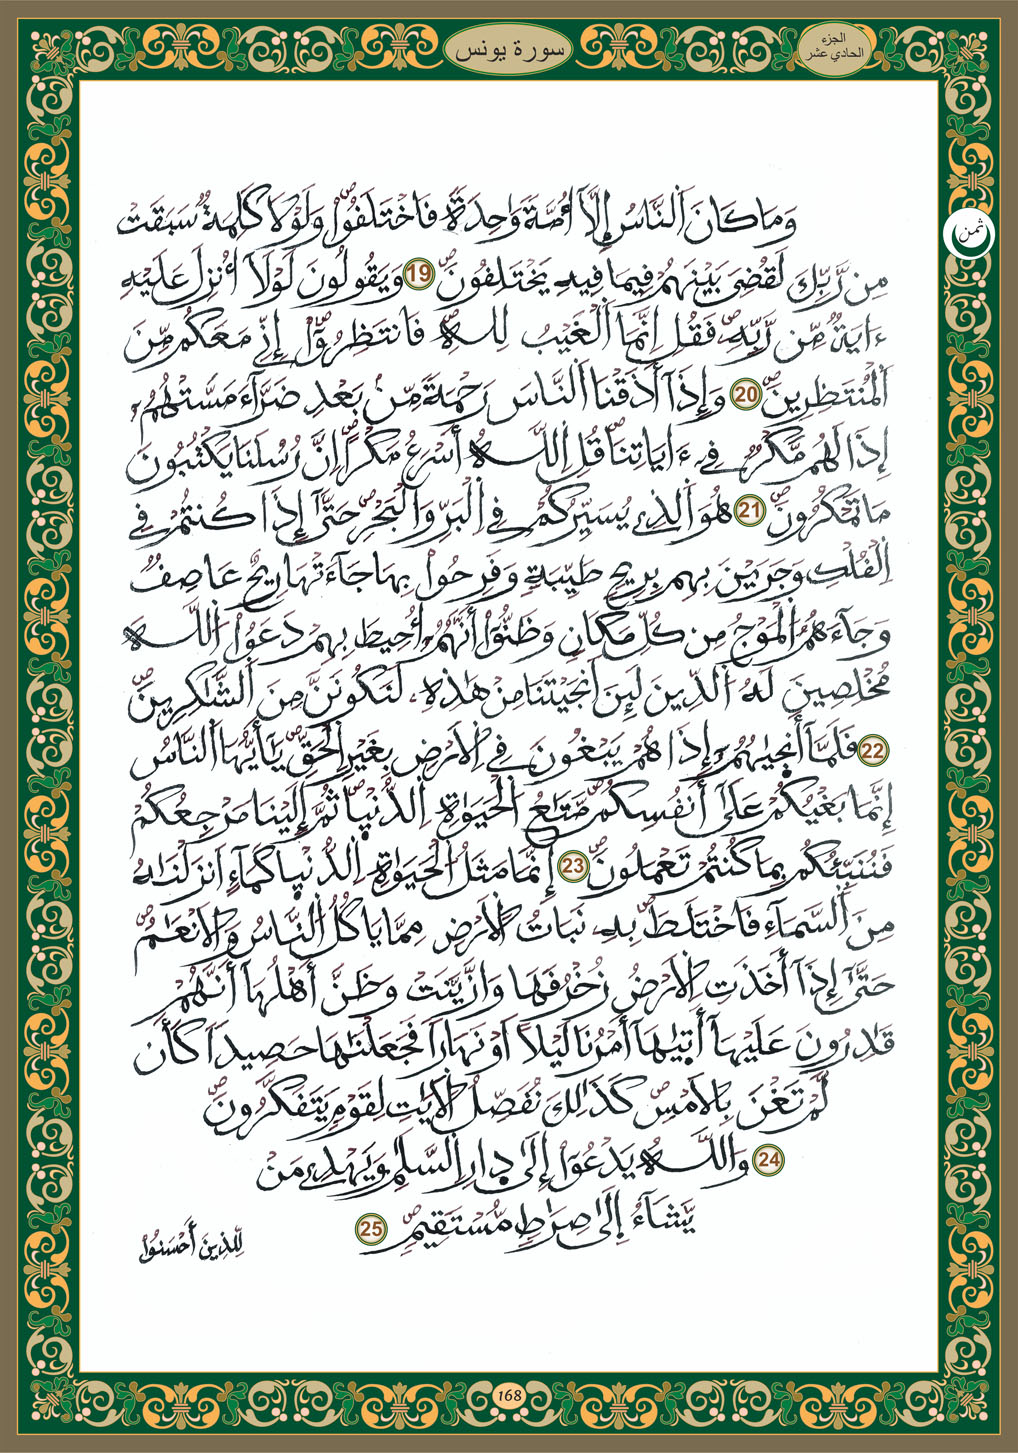 الجزء
الحادي عشر
سورة يونس
ثمن
وَمَا كَانَ اَ۬لنَّاسُ إِلَّآ أُمَّةٗ وَٰحِدَةٗ فَاخْتَلَفُواْۖ وَلَوْلَا كَلِمَةٞ سَبَقَتْ
مِن رَّبِّكَ لَقُضِيَ بَيْنَهُمْ فِيمَا فِيهِ يَخْتَلِفُونَۖ 19 وَيَقُولُونَ لَوْلَآ أُنزِلَ عَلَيْهِ
ءَايَةٞ مِّن رَّبِّهِۦۖ فَقُلِ اِنَّمَا اَ۬لْغَيْبُ لِلهِۖ فَانتَظِرُوٓاْۖ إِنِّے مَعَكُم مِّنَ
اَ۬لْمُنتَظِرِينَۖ 20 وَإِذَآ أَذَقْنَا اَ۬لنَّاسَ رَحْمَةٗ مِّنۢ بَعْدِ ضَرَّآءَ مَسَّتْهُمُۥٓ
إِذَا لَهُم مَّكْرٞ فِےٓ ءَايَاتِنَاۖ قُلِ اِ۬للَّهُ أَسْرَعُ مَكْراًۖ اِنَّ رُسُلَنَا يَكْتُبُونَ
مَا تَمْكُرُونَۖ 21 هُوَ اَ۬لذِے يُسَيِّرُكُمْ فِے اِ۬لْبَرِّ وَالْبَحْرِۖ حَتَّىٰٓ إِذَا كُنتُمْ فِے
اِ۬لْفُلْكِ وَجَرَيْنَ بِهِم بِرِيحٖ طَيِّبَةٖ وَفَرِحُواْ بِهَا جَآءَتْهَا رِيحٌ عَاصِفٞ
وَجَآءَهُمُ اُ۬لْمَوْجُ مِن كُلِّ مَكَانٖ وَظَنُّوٓاْ أَنَّهُمُۥٓ أُحِيطَ بِهِمْ دَعَوُاْ اُ۬للَّهَ
مُخْلِصِينَ لَهُ اُ۬لدِّينَ لَئِنَ اَنجَيْتَنَا مِنْ هَٰذِهِۦ لَنَكُونَنَّ مِنَ اَ۬لشَّٰكِرِينَۖ
22 فَلَمَّآ أَنج۪يٰهُمُۥٓ إِذَا هُمْ يَبْغُونَ فِے اِ۬لْأَرْضِ بِغَيْرِ اِ۬لْحَقِّۖ يَٰٓأَيُّهَا اَ۬لنَّاسُ
إِنَّمَا بَغْيُكُمْ عَلَىٰٓ أَنفُسِكُمۖ مَّتَٰعُ اُ۬لْحَيَوٰةِ اِ۬لدُّنْي۪اۖ ثُمَّ إِلَيْنَا مَرْجِعُكُمْ
فَنُنَبِّئُكُم بِمَا كُنتُمْ تَعْمَلُونَۖ 23 إِنَّمَا مَثَلُ اُ۬لْحَيَوٰةِ اِ۬لدُّنْي۪ا كَمَآءٍ اَنزَلْنَٰهُ
مِنَ اَ۬لسَّمَآءِ فَاخْتَلَطَۖ بِهِۦ نَبَاتُ اُ۬لْأَرْضِ مِمَّا يَاكُلُ اُ۬لنَّاسُ وَالْأَنْعَٰمُۖ
حَتَّىٰٓ إِذَآ أَخَذَتِ اِ۬لْأَرْضُ زُخْرُفَهَا وَازَّيَّنَتْ وَظَنَّ أَهْلُهَآ أَنَّهُمْ
قَٰدِرُونَ عَلَيْهَآ أَت۪يٰهَآ أَمْرُنَا لَيْلاً اَوْ نَهَاراٗ فَجَعَلْنَٰهَا حَصِيداٗ كَأَن
لَّمْ تَغْنَ بِالْأَمْسِۖ كَذَٰلِكَ نُفَصِّلُ اُ۬لْأٓيَٰتِ لِقَوْمٖ يَتَفَكَّرُونَۖ
24 وَاللَّهُ يَدْعُوٓاْ إِلَىٰ د۪ارِ اِ۬لسَّلَٰمِ وَيَهْدِے مَنْ
يَّشَآءُ اِلَىٰ صِرَٰطٖ مُّسْتَقِيمٖۖ 25
لِّلذِينَ أَحْسَنُواْ
168